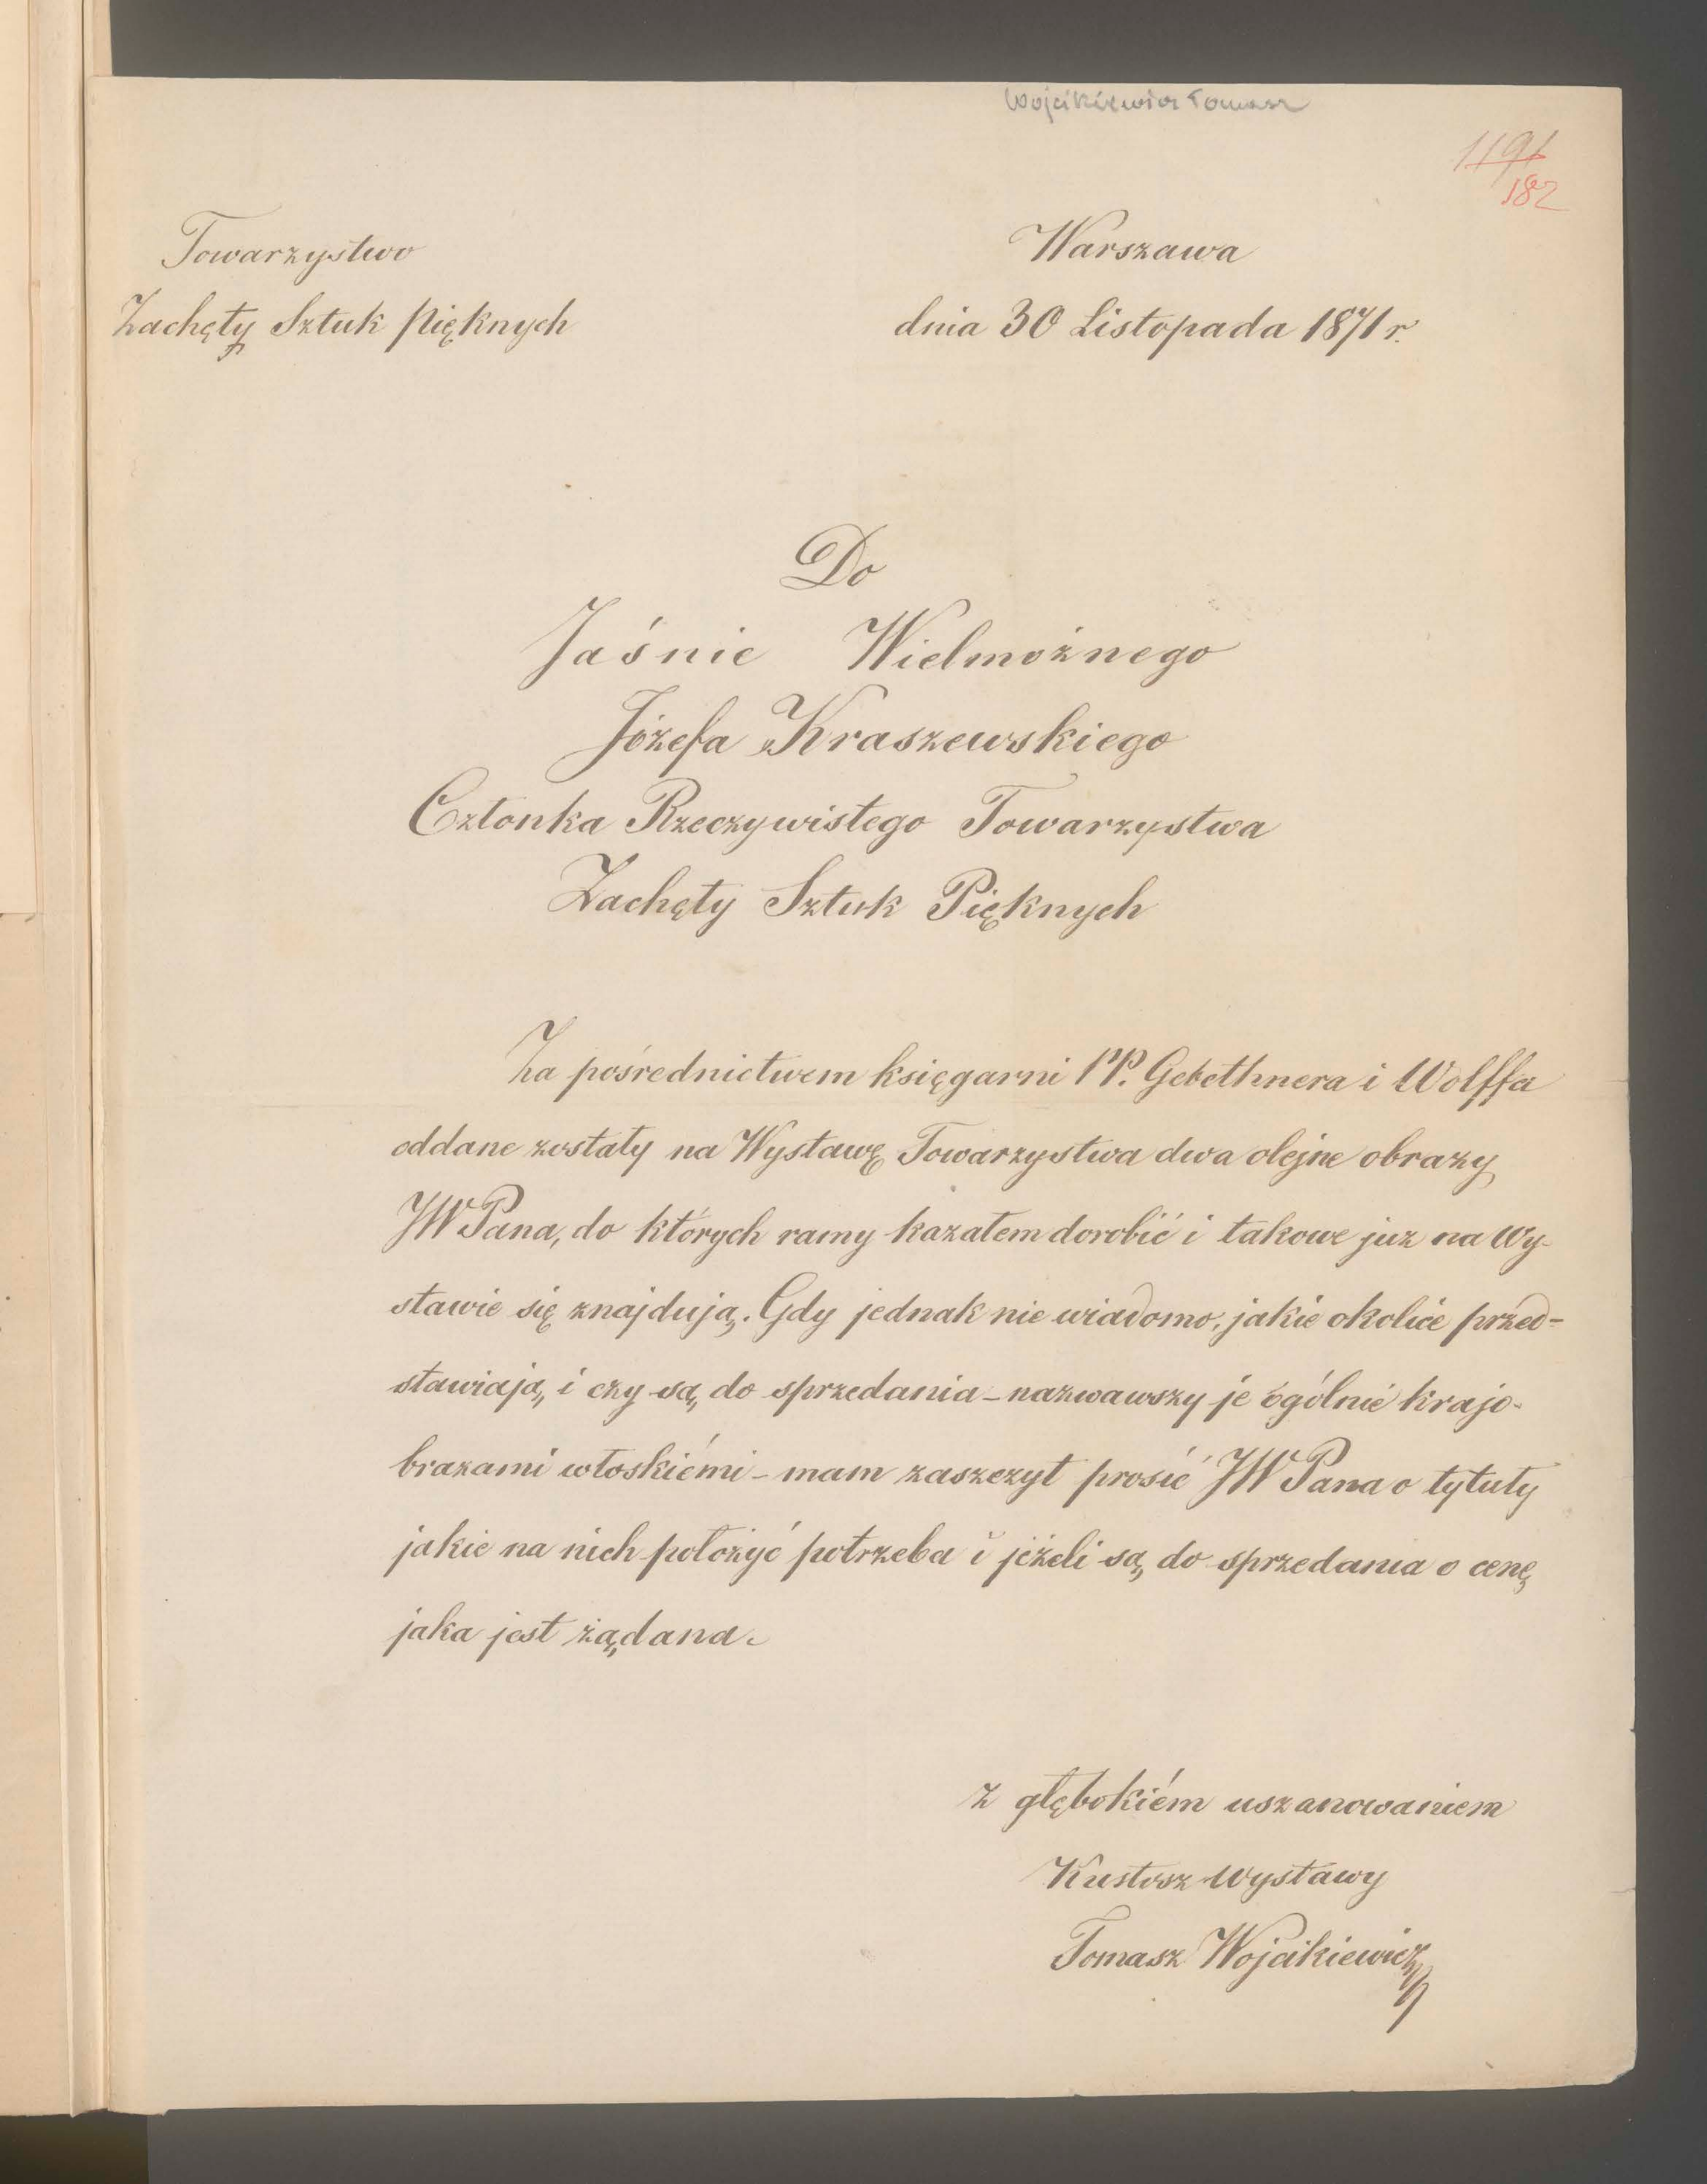 Wojcikiewicz Tomasz
1191
182
Towarzystwo
Zachęty Sztuk Pięknych
Warszawa
dnia 30 Listopada 1871 r.
Do
Jaśnie Wielmożnego
Józefa Kraszewskiego
Członka Rzeczywistego Towarzystwa
Zachęty Sztuk Pięknych
Za pośrednictwem księgarni PP. Gebethnera i Wolffa
oddane zostały na Wystawę Towarzystwa dwa olejne obrazy
JW Pana, do których ramy kazałem dorobić i takowe już na Wy-
stawie się znajdują. Gdy jednak nie wiadomo, jakie okolice przed-
stawiają, i czy są, do sprzedania - nazwawszy je ogólnie krajo-
brazami włoskiémi - mam zaszczyt prosić JW Pana o tytuły
jakie na nich położyć potrzeba i jeżeli są, do sprzedania o cenę
jaka jest żądana.
z głębokiém uszanowaniem
Kustosz Wystawy
Tomasz Wojcikiewicz